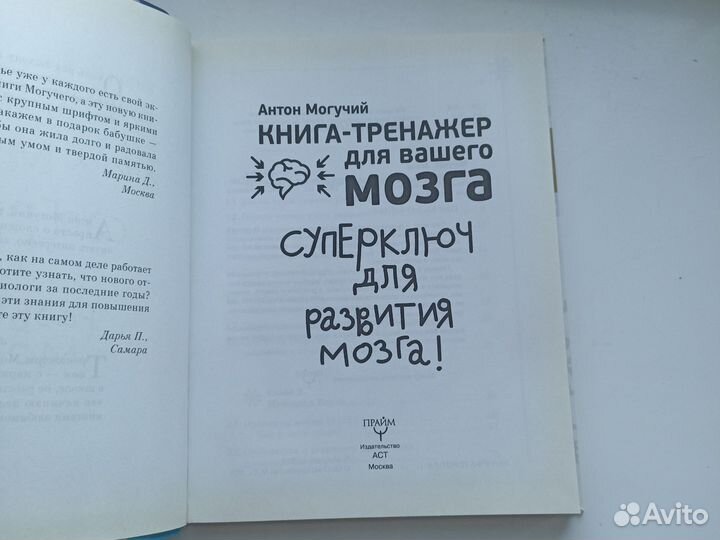 ье уже у каждого есть свой эк-
ниги Могучего, а эту новую кни-
с крупным шрифтом и яркими
акажем в подарок бабушке —
бы она жила долго и радовала
ым умом и твердой памятью.
Марина Д.,
Москва
, как на самом деле работает
отите узнать, что нового от-
биологи за последние годы?
эти знания для повышения
те эту книгу!
Дарья П.,
Самара
Антон Могучий
КНИГА-ТРЕНАЖЕР
для вашего
мозга
СУПЕРКЛЮЧ
для
развития
мозга!
ПРАЙМ
Издательство
АСТ
Москва
Avito